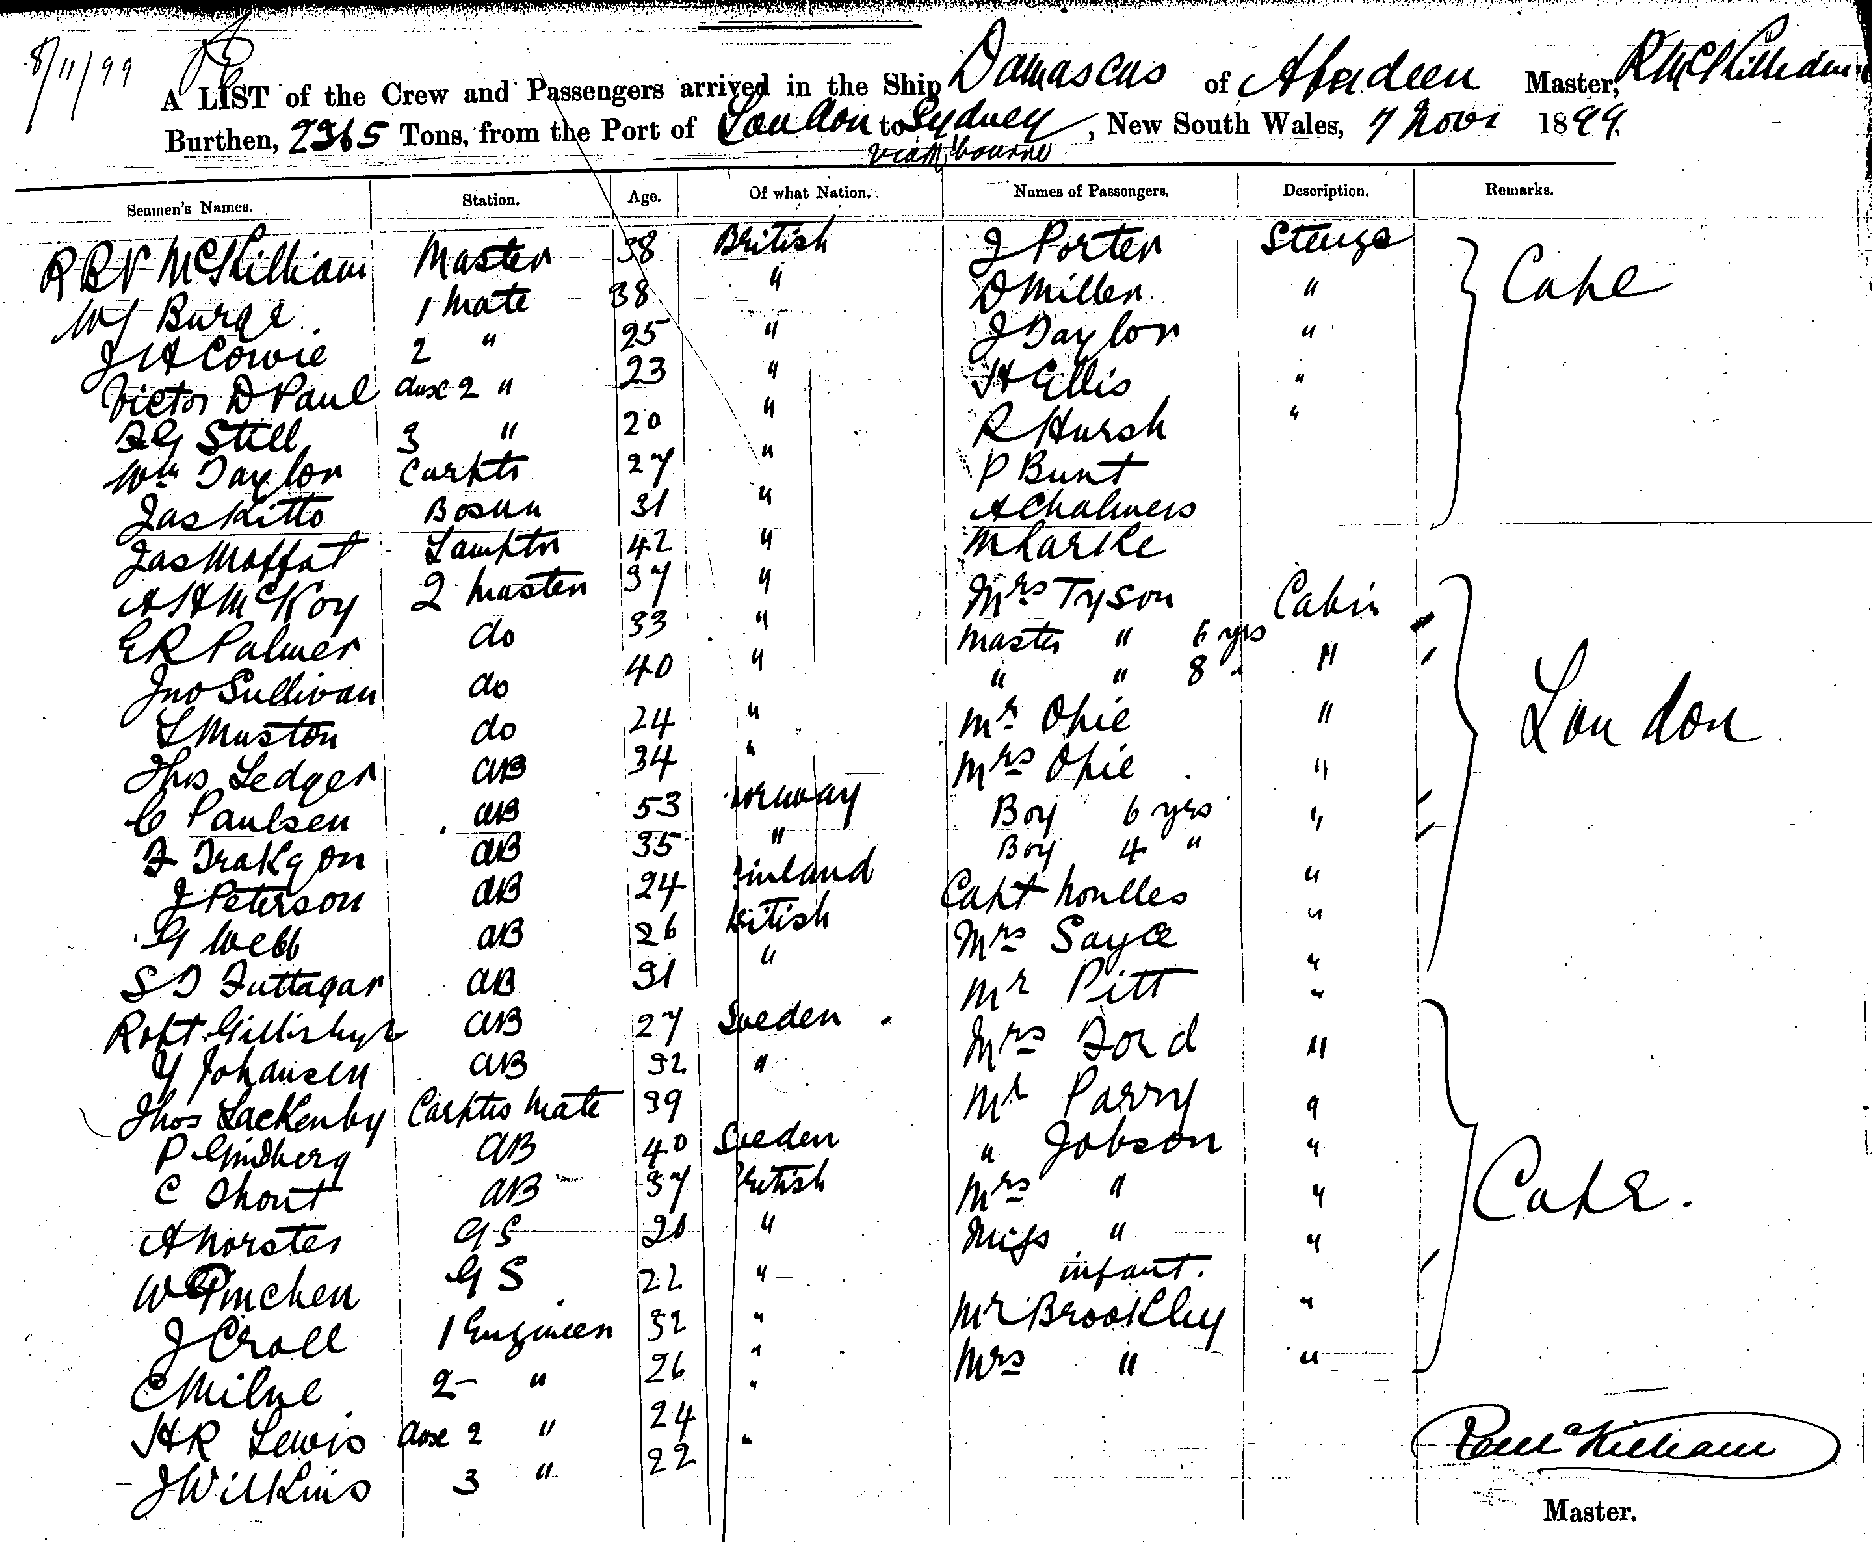 8/11/99
A LIST of the Crew and Passengers arrived in the Ship Damascus of Aberdeen Master, R McKilliam
Burthen, 2365 Tons, from the Port of London to Sydney, New South Wales, 7 Novr 1899.
via Melbourne
Seamen's Names. Station. Age. Of what Nation. Names of Passengers. Description. Remarks.
McKilliam Master 38 British J Porter Steerge Cape
WJ Burge 1 Mate 38 " D Miller "
J A Cowie 2 " 25 " J Taylor "
Victor D Paul Auxe 2 " 23 " H Ellis "
F G Still 3 " 20 " R Hursh "
Wm Taylor Carptr 27 " P Bunt
Jas Kitto Bosun 31 " A Chalmers
Jas Moffat Lamptr 42 " M Larke
A H McKoy 2 Master 37 " Mrs Tyson Cabin London
E R Palmer do 33 " Master " 6 yrs "
Jno Sullivan do 40 " " " 8 "
L Muston do 24 " Mr Opie "
Thos Ledger AB 34 " Mrs Opie "
C Paulsen AB 53 Norway Boy 6 yrs "
AB 35 " Boy 4 "
J Peterson AB 24 Finland Capt "
G Webb AB 26 British Mrs Sayce "
S T Futtagar AB 31 " Mr Pitt "
Robt AB 27 Sweden Mrs Ford " Cape.
Y Johansen AB 32 " Mr Parry "
Thos Lackenby Carptrs Mate 39 " Jobson "
P AB 40 Sweden Mrs " "
C Thout AB 37 British Miss " "
A Norster G S 20 " infant.
W Pinchen G S 22 " Mr Brookley "
J Croll 1 Engineer 32 " Mrs " "
C Milne 2 " 26 "
H R Lewis Auxe 2 " 24 "
J Wilkins 3 " 22 "
McKilliam
Master.